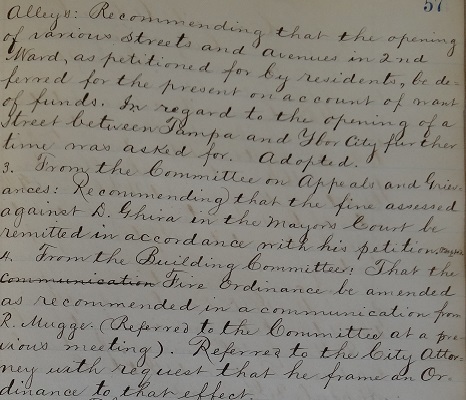 57
Alleys: Recommending that the opening
of various streets and avenues in 2nd
Ward, as petitioned for by residents, be de-
ferred for the present on account of want
of funds. In regard to the opening of a
street between Tampa and Ybor City further
time was asked for. Adopted.
3. From the Committee on Appeals and Griev-
ances: Recommending that the fine assessed
against D. Ghira in the Mayors Court be
remitted in accordance with his petition.
4. From the Building Committee: That the
communication Fire Ordinance be amended
as recommended in a communication from
R. Mugge. (Referred to the Committee at a pre-
vious meeting). Referred to the City Attor-
ney with request that he frame an Or-
dinance to that effect.